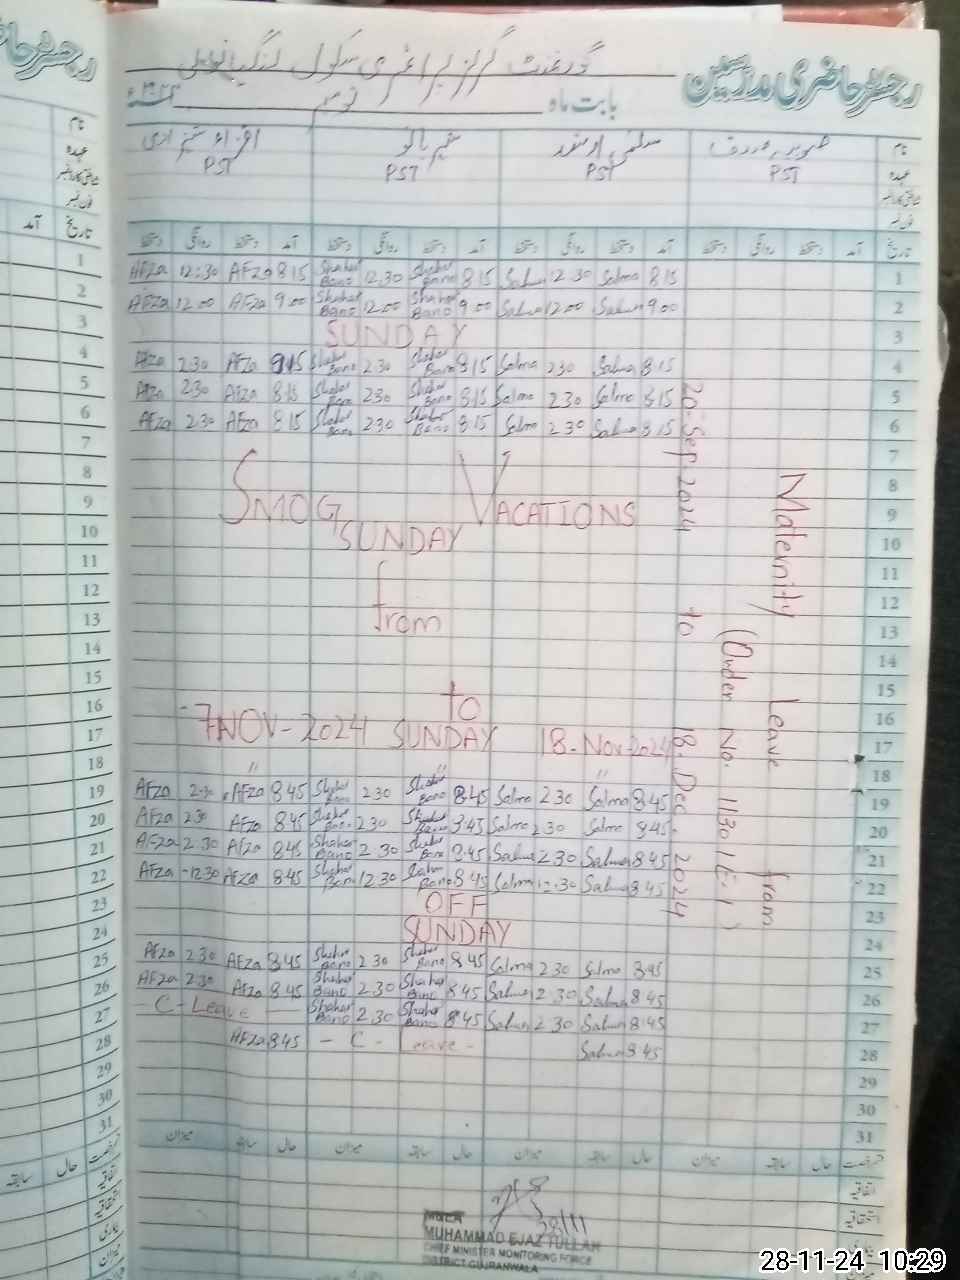 رجسٹر حاضری مدرسین
گورنمنٹ گرلز پرائمری سکول
بابت ماہ نومبر
نام
عہدہ PST PST PST PST
فون نمبر
تاریخ آمد دستخط روانگی دستخط آمد دستخط روانگی دستخط آمد دستخط روانگی دستخط آمد دستخط روانگی دستخط
1 8 15 Salma 12 30 Salma 8 15 Shahar Bano 12.30 Shahar Bano 8 15 AFZa 12:30 AFza
2 9 00 Salma 12 00 Salma 9 00 Shahar Bano 12.00 Shahar Bano 9 00 AFZa 12 00 AFza
3 SUNDAY
4 8 15 Salma 2 30 Salma 8 15 Shahar Bano 2 30 Shahar Bano AFza 2 30 AFza
5 8 15 Salma 2 30 Salma 8 15 Shahar Bano 2 30 Shahar Bano 8 15 AFza 2 30 AFza
6 8 15 Salma 2 30 Salma 8 15 Shahar Bano 2 30 Shahar Bano 8 15 AFza 2 30 AFza
7
8
9 SMOG VACATIONS
10 SUNDAY
11
12
13 from
14
15
16 to
17 7 NOV-2024 SUNDAY 18-Nov-2024
18 " " "
19 8 45 Salma 2 30 Salma 8 45 Shahar Bano 2 30 Shahar Bano 8 45 AFza 2-30 AFZa
20 8 45 Salma 2 30 Salma 8 45 Shahar Bano 2 30 Shahar Bano 8 45 AFza 2 30 AFza
21 8 45 Salma 2 30 Salma 8 45 Shahar Bano 2 30 Shahar Bano 8 45 AFza 2 30 AFza
22 8 45 Salma 12-30 Salma 8 45 Bano 12 30 Shahar Bano 8 45 AFza 12 30 AFza
23 OFF
24 SUNDAY
25 8 45 Salma 2 30 Salma 8 45 Shahar Bano 2 30 Shahar Bano 8 45 AFza 2 30 AFza
26 8 45 Salma 2 30 Salma 8 45 Shahar Bano 2 30 Shahar Bano 8 45 AFza 2 30 AFza
27 8 45 Salma 2 30 Salma 8 45 Shahar Bano 2 30 Shahar Bano — C - Leave —
28 8 45 Salma - C - Leave - 8 45 AFza
29
30
31
Maternity Leave from
(Order No. 1130/E-I)
20-Sep 2024 to 18-Dec 2024
میزان سابقہ حال میزان سابقہ حال میزان سابقہ حال میزان سابقہ حال
اتفاقیہ
استحقاقیہ
28/11
MUHAMMAD EJAZ TULLAH
CHIEF MINISTER MONITORING FORCE
DISTRICT GUJRANWALA
28-11-24 10:29